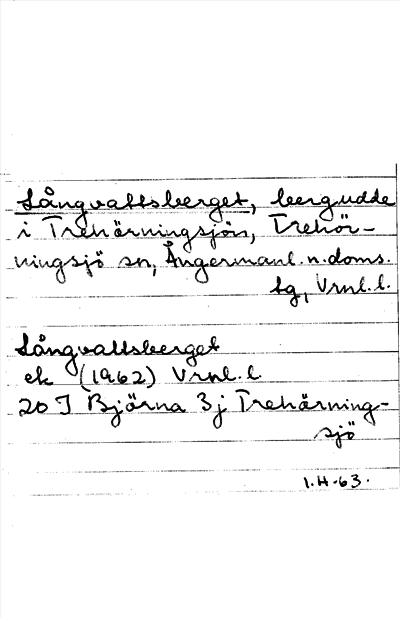 Långvattsberget, bergudde
i Trehörningsjön, Trehör-
ningsjö sn, Ångermanl. n. doms.
sg, Vrnl. l.
Långvattsberget
ek (1962) Vrnl. l.
20 I Björna 3 j Trehörning-
sjö
1.H-63.